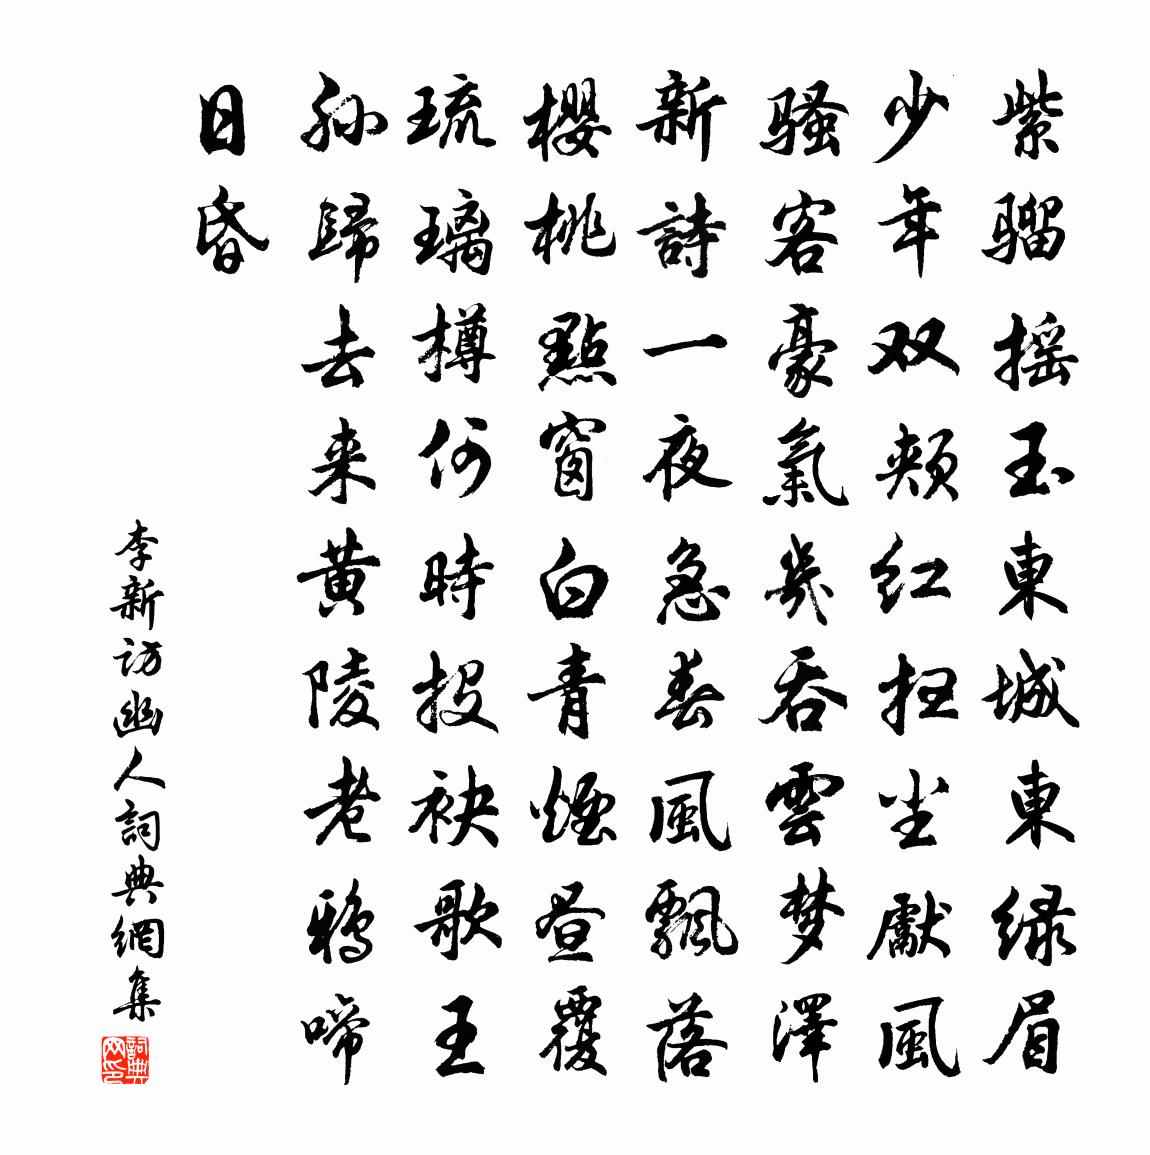 紫騮摇玉東城東绿眉
少年双頰红扫尘獻風
騷客豪氣幾吞雲梦澤
新詩一夜急春風飄落
櫻桃點窗白青煙昼覆
琉璃樽何時投袂歌王
孙歸去来黄陵老鴉啼
日昏
李新訪幽人詞典網集
詞典网印